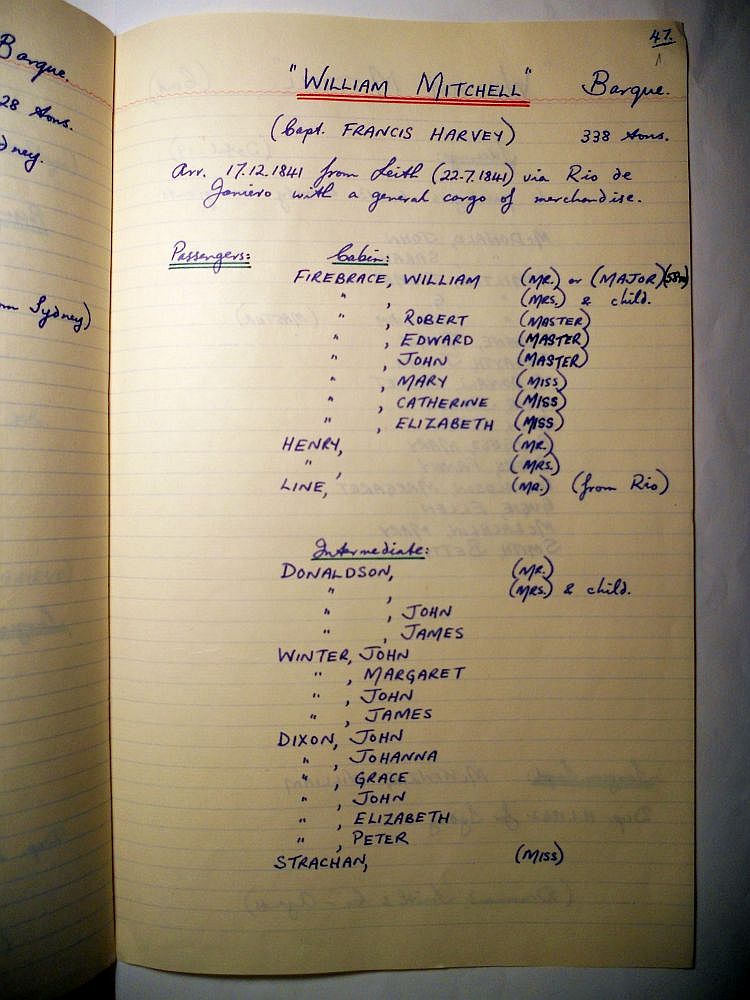 47.
"WILLIAM MITCHELL" Barque.
(Capt. FRANCIS HARVEY) 338 tons.
Arr. 17.12.1841 from Leith (22.7.1841) via Rio de
Janiero with a general cargo of merchandise.
Passengers: Cabin:
FIREBRACE, WILLIAM (MR.) or (MAJOR)
" , (MRS.) & child.
" , ROBERT (MASTER)
" , EDWARD (MASTER)
" , JOHN (MASTER)
" , MARY (MISS)
" , CATHERINE (MISS)
" , ELIZABETH (MISS)
HENRY, (MR.)
" , (MRS.)
LINE, (MR.) (from Rio)
Intermediate:
DONALDSON, (MR.)
" , (MRS.) & child.
" , JOHN
" , JAMES
WINTER, JOHN
" , MARGARET
" , JOHN
" , JAMES
DIXON, JOHN
" , JOHANNA
" , GRACE
" , JOHN
" , ELIZABETH
" , PETER
STRACHAN, (MISS)
Barque.
28 tons.
Sydney)